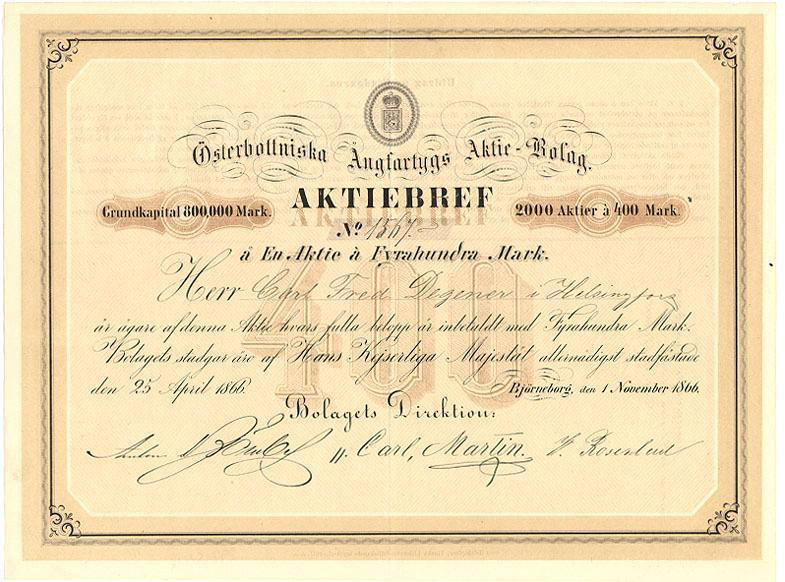 Österbottniska Ångfartygs Aktie-Bolag.
AKTIEBREF
Grundkapital 800,000 Mark.
2000 Aktier à 400 Mark.
No 1567.
å En Aktie à Fyrahundra Mark.
Herr Carl Fred Degener i Helsingfors
är ägare af denna Aktie hvars fulla belopp är inbetaldt med Fyrahundra Mark.
Bolagets stadgar äro af Hans Kejserliga Majestät allernådigst stadfästade
den 25 April 1866.
Björneborg, den 1 November 1866.
Bolagets Direktion:
Carl, Martin.
400